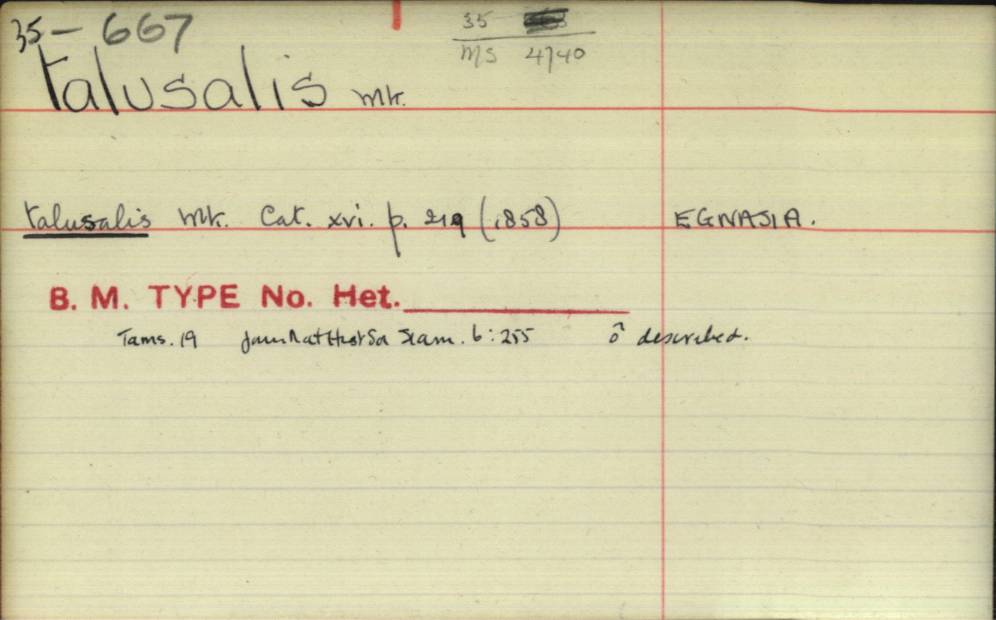 35 - 667
35
MS 4740
talusalis Wlk.
talusalis Wlk. Cat. xvi. p. 219 (1858) EGNASIA.
B. M. TYPE No. Het.
Tams. 19 Journ Nat Hist Soc Siam. 6:255 ♂ described.